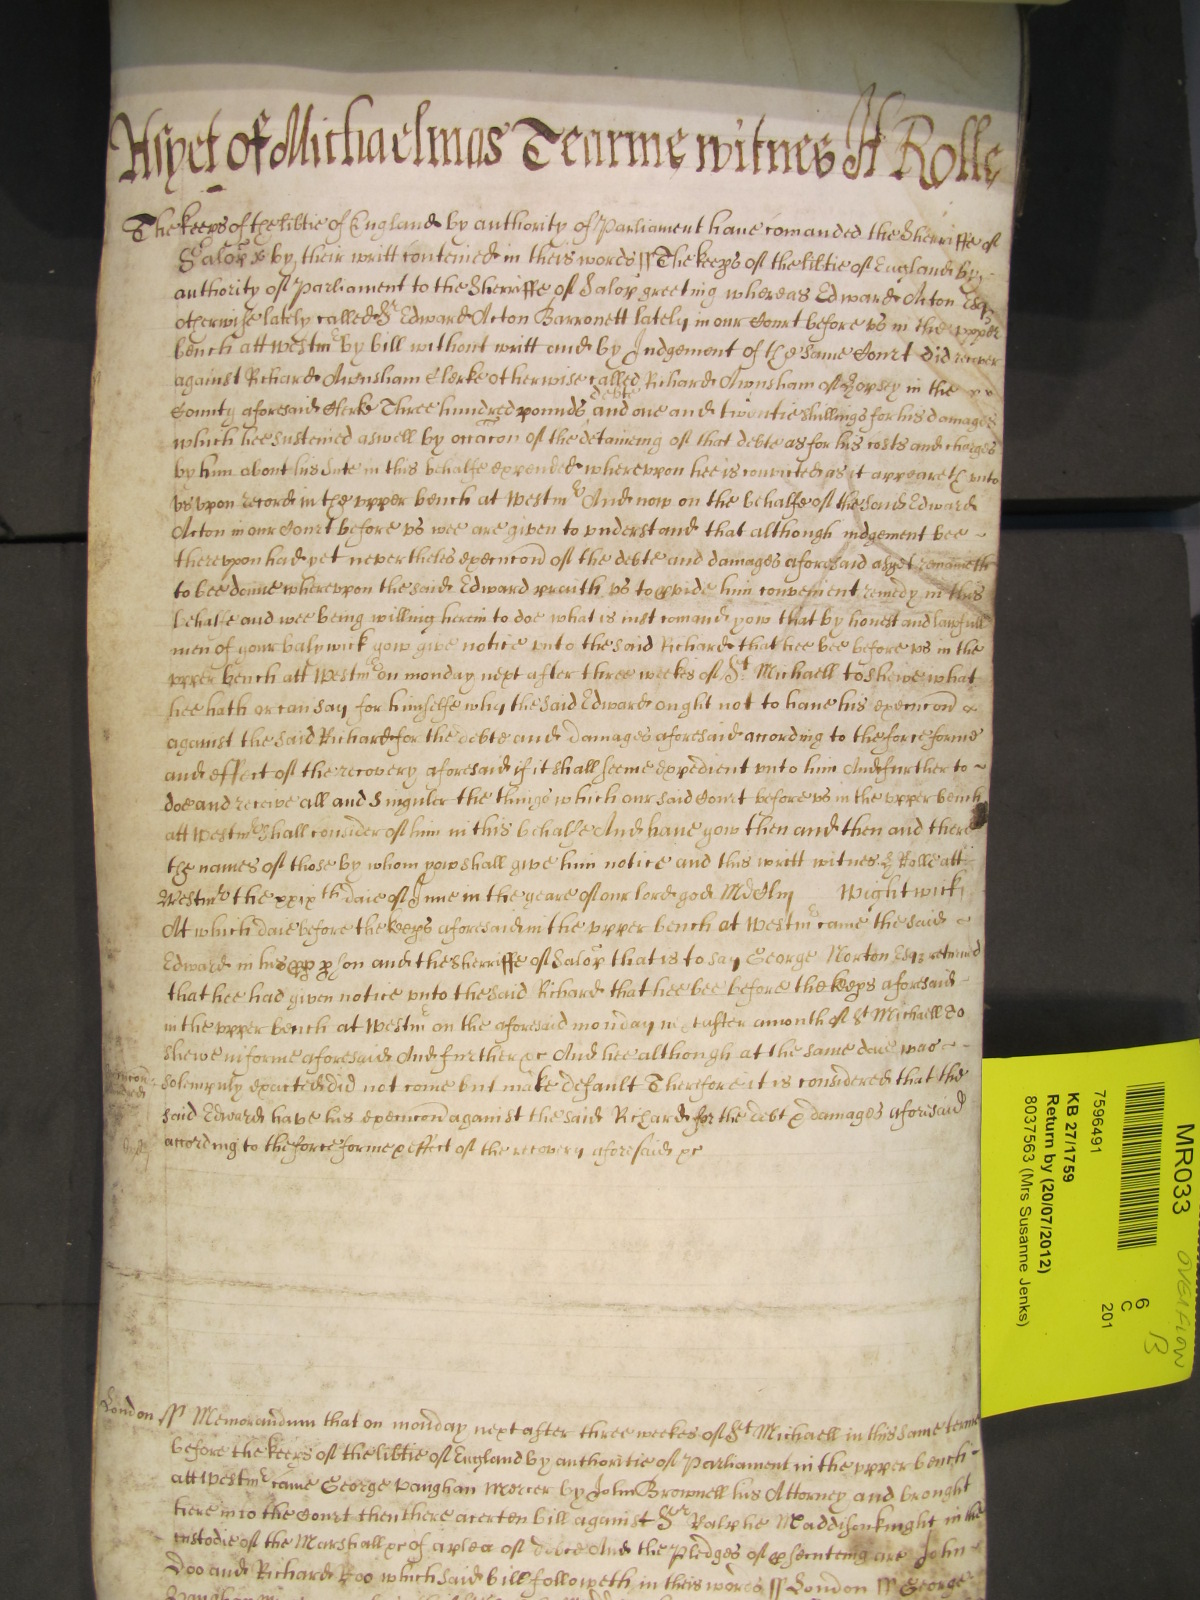 As yet of Michaelmas Tearme witnes H Rolle
The keeps of the libtie of England by authority of Parliament have comanded the Sherriffe of
Salop by their writt conteined in theis words ss The keeps of the libtie of England by
authority of Parliament to the Sherriffe of Salop greeting whereas Edward Acton Esq
otherwise lately called Sr Edward Acton Barronett lately in our Court before us in the upper
bench att Westmr by bill without writt and by Judgement of the same Court did recover
against Richard Awnsham Clerke otherwise called Richard Awnsham of Hopsey in the
County aforesaid Clerke Three hundred pounds debte and one and twentie shillings for his damages
which hee susteined aswell by occacon of the detaineing of that debte as for his costs and charges
by him about his sute in this behalfe expended whereuppon hee is convicted as it appeareth unto
us upon record in the upper bench at Westmr And now on the behalfe of the said Edward
Acton in our Court before us wee are given to understand that although indgement bee
thereupon had yet nevertheles execucon of the debte and damages aforesaid as yet remaineth
to bee donne whereuppon the said Edward praith us to pvide him convenient remedy in this
behalfe and wee being willing herein to doe what is iust comand yow that by honest and lawfull
men of your balywick yow give notice unto the said Richard that hee bee before us in the
upper bench att Westmr on monday next after three weekes of St Michaell to shewe what
hee hath or can say for himselfe why the said Edward ought not to have his execucon
against the said Richard for the debte and damages aforesaid according to the force forme
and effect of the recovery aforesaid if it shall seeme expedient unto him And further to
doe and receive all and singuler the things which our said Court before us in the upper bench
att Westmr shall consider of him in this behalfe And have yow then and then and there
the names of those by whom yow shall give him notice and this writt witnes H Rolle att
Westmr the xxixth daie of June in the yeare of our lord god MdClij Wightwick
At which daie before the keeps aforesaid in the upper bench at Westmr came the said
Edward in his pp pson and the Sherriffe of Salop that is to say George Norton Esq retorned
that hee had given notice unto the said Richard that hee bee before the keeps aforesaid
in the upper bench at Westmr on the aforesaid monday next after a month of St Michaell to
shewe in forme aforesaid And further &c And hee although at the same daie was
solempnly exacted did not come but make default Therefore it is considered that the
said Edward have his execucon against the said Richard for the debt & damages aforesaid
according to the force forme & effect of the recovery aforesaid &c
London ss Memorandum that on monday next after three weekes of St Michaell in this same terme
before the keeps of the libtie of England by authoritie of Parliament in the upper bench
att Westmr came George Vaughan Mercer by John Brownell his Attorney and brought
here into the Court then there a certen bill against Sr Ralphe Maddison knight in the
custodie of the Marshall &c of a plea of debte And the pledges of psecuteing are John
Doo and Richard Roo which said bill followeth in theis words ss London ss George
MR033
7596491
KB 27/1759
Return by (20/07/2012)
8037563 (Mrs Susanne Jenks)
6
C
201
OVERFLOW
B